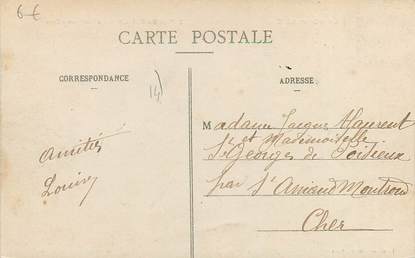 6€
CARTE POSTALE
CORRESPONDANCE
ADRESSE:
14)
Amitiés
Louise
Madame Jacques Laurent
et Mademoiselle
St Georges de Poisieux
par St Amand Montrond
Cher